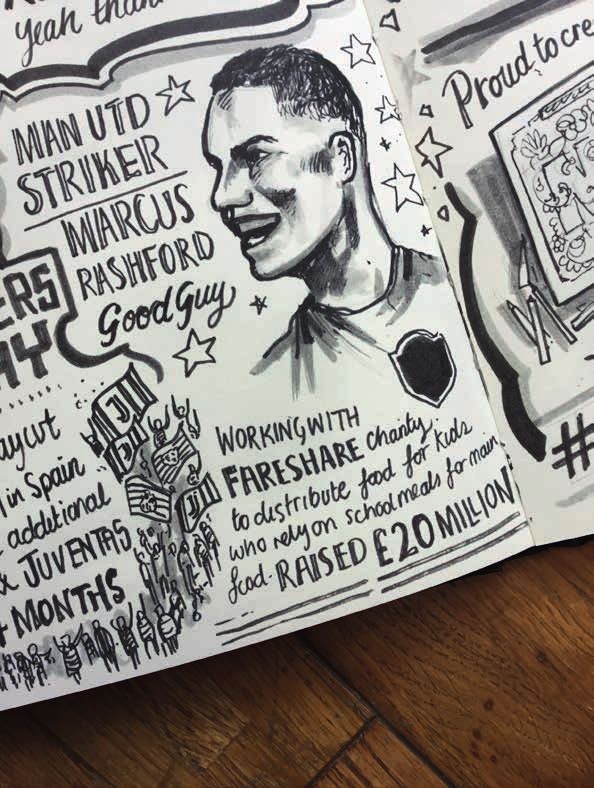 Yeah than
MAN UTD
STRIKER
MARCUS
RASHFORD
Good Guy
ERS
AY
aycut
in Spain
additional
& JUVENTAS
4 MONTHS
WORKING WITH
FARESHARE charity
to distribute food for kids
who rely on school meals for main
food. RAISED £20 MILLION
Proud to cre
#